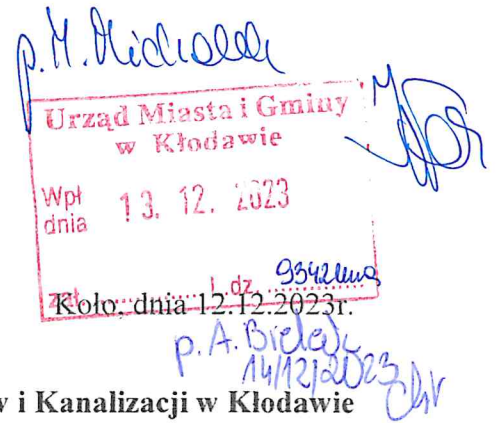 p. M. Michalak
Urząd Miasta i Gminy
w Kłodawie
Wpł
dnia 13. 12. 2023
zał. l. dz. 9342
Koło, dnia 12.12.2023r.
p. A. Bielak
14/12/2023
w i Kanalizacji w Kłodawie